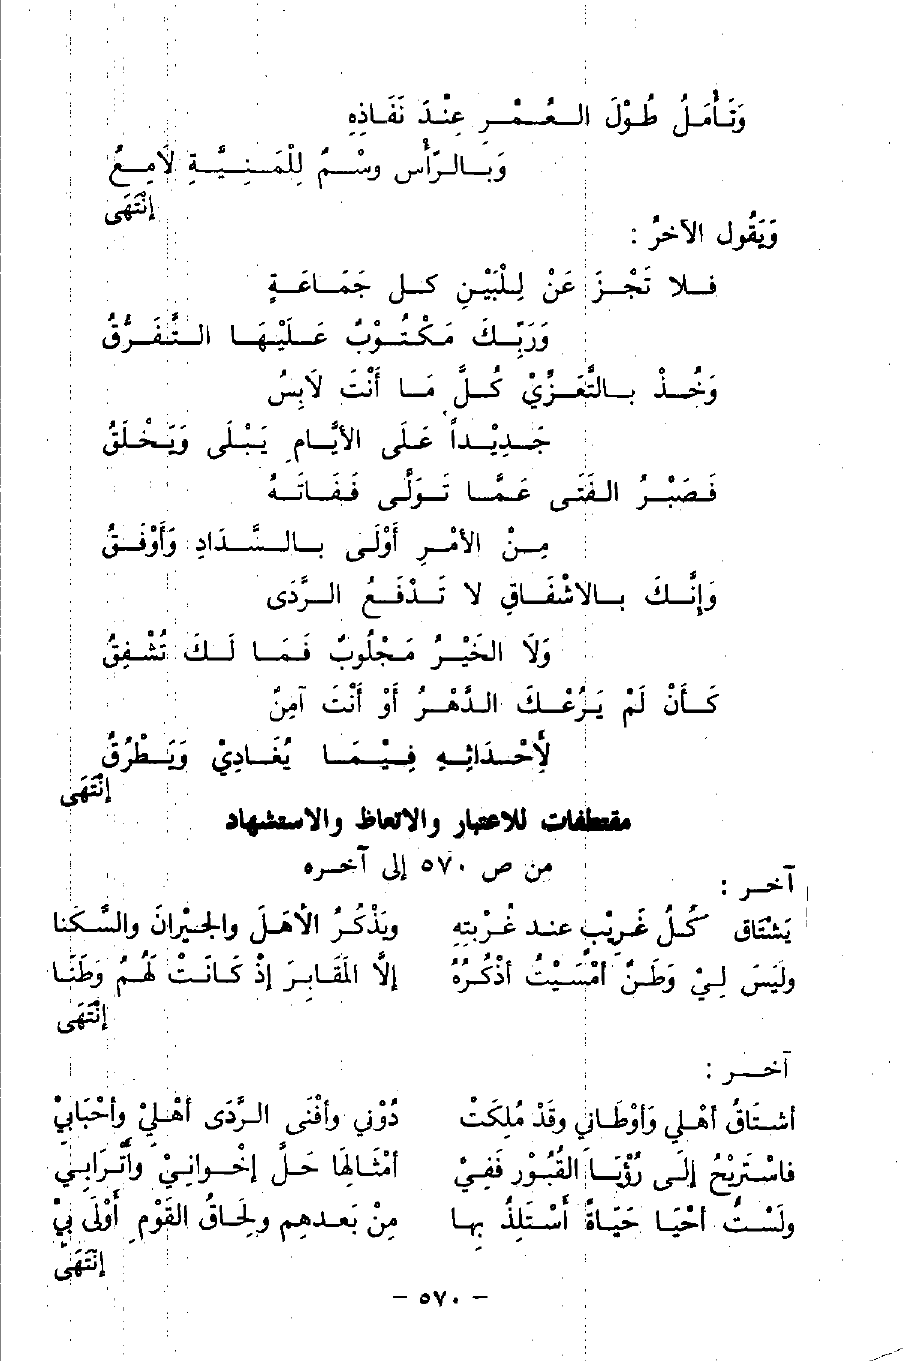 وَتَأْمَلُ طُوْلَ العُمْرِ عِنْدَ نَفَاذِهِ
وَبِالرَّأْسِ وَسْمٌ لِلْمَنِيَّةِ لَامِعُ
إِنْتَهَى
وَيَقُول الآخرُ :
فلا تَجْزَعَنْ لِلْبَيْنِ كل جَمَاعَةٍ
وَرَبِّكَ مَكْتُوْبٌ عَلَيْهَا التَّفَرُّقُ
وَخُذْ بالتَّعَزِّيْ كُلَّ مَا أَنْتَ لَابِسُ
جَدِيْداً عَلَى الأيَّامِ يَبْلَى وَيَخْلَقُ
فَصَبْرُ الفَتَى عَمَّا تَوَلَّى فَفَاتَهُ
مِنْ الأَمْرِ أَوْلَى بالسَّدَادِ وَأَوْفَقُ
وَإِنَّكَ بالاشْفَاقِ لا تَدْفَعُ الرَّدَى
وَلَا الخَيْرُ مَجْلُوبٌ فَمَا لَكَ تُشْفِقُ
كَأَنْ لَمْ يَرُعْكَ الدَّهْرُ أَوْ أَنْتَ آمِنٌ
لِأَحْدَاثِهِ فِيْمَا يُغَادِيْ وَيَطْرُقُ
إِنْتَهَى
مقتطفات للاعتبار والاتعاظ والاستشهاد
من ص ٥٧٠ إلى آخره
آخر :
يَشْتَاق كُلُّ غَرِيْبٍ عند غُرْبَتِهِ ويَذْكُرُ الأَهْلَ والجيْرانَ والسَّكنا
ولَيسَ لِيْ وَطَنٌ أَمْسَيْتُ أَذْكُرُهُ إلَّا المَقَابِرَ إِذْ كَانَتْ لَهُمُ وَطَنَا
إِنْتَهَى
آخر :
أشتَاقُ أهْلي وَأَوْطَاني وقَدْ مُلِكَتْ دُوْني وأَفْنَى الرَّدَى أَهْليْ وأَحْبَابيْ
فاسْتَرِيْحُ إِلَى رُؤْيَا القُبُوْرِ فَفِيْ أَمْثَالِهَا حَلَّ إِخْوانِيْ وأَتْرَابِيْ
ولَسْتُ أَحْيَا حَيَاةً أَسْتَلِذُّ بِها مِنْ بَعدِهِم ولِحَاقُ القَوْمِ أَوْلَى بيْ
إِنْتَهَى
– ٥٧٠ –